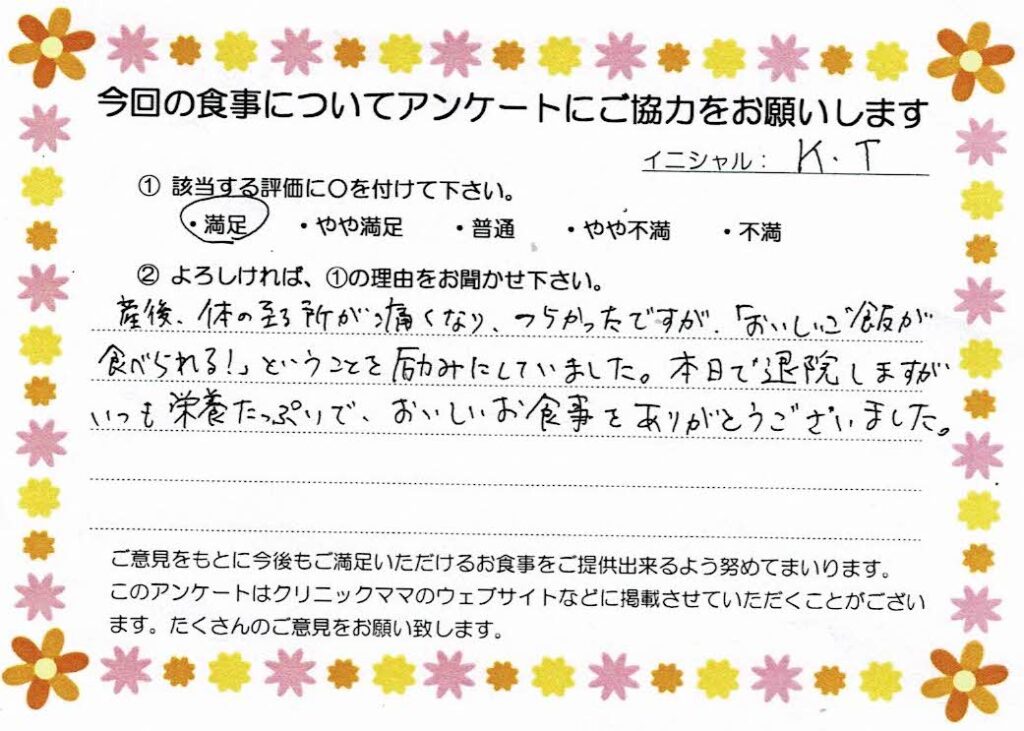 今回の食事についてアンケートにご協力をお願いします
イニシャル： K.T
① 該当する評価に〇を付けて下さい。
・満足 ・やや満足 ・普通 ・やや不満 ・不満
② よろしければ、①の理由をお聞かせ下さい。
産後、体の至る所が痛くなり、つらかったですが、「おいしいご飯が
食べられる!」ということを励みにしていました。本日で退院しますが
いつも栄養たっぷりで、おいしいお食事をありがとうございました。
ご意見をもとに今後もご満足いただけるお食事をご提供出来るよう努めてまいります。
このアンケートはクリニックママのウェブサイトなどに掲載させていただくことがござい
ます。たくさんのご意見をお願い致します。